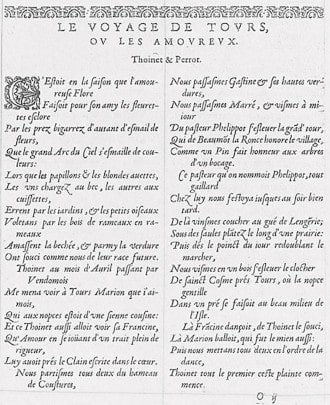 LE VOYAGE DE TOVRS,
OV LES AMOVREVX.
Thoinet & Perrot.
C'Estoit en la saison que l'amou-
reuse Flore
Faisoit pour son amy les fleuret-
tes esclore
Par les prez bigarrez d'autant d'esmail de
fleurs,
Que le grand Arc du Ciel s'esmaille de cou-
leurs:
Lors que les papillons & les blondes auettes,
Les vns chargez au bec, les autres aux
cuissettes,
Errent par les iardins, & les petits oiseaux
Voletans par les bois de rameaux en ra-
meaux
Amassent la bechée, & parmy la verdure
Ont souci comme nous de leur race future.
Thoinet au mois d'Auril passant par
Vendomois
Me mena voir à Tours Marion que i'ai-
mois,
Qui aux nopces estoit d'vne sienne cousine:
Et ce Thoinet aussi alloit voir sa Francine,
Qu'Amour en se iouänt d'vn trait plein de
rigueur,
Luy auoit prés le Clain escrite dans le cœur.
Nous partismes tous deux du hameau
de Coustures,
Nous passasmes Gastine & ses hautes ver-
dures,
Nous passasmes Marré, & vismes à mi-
iour
Du pasteur Phelippot s'esleuer la grãd' tour,
Qui de Beaumõt la Ronce honore le village,
Comme vn Pin fait honneur aux arbres
d'vn bocage.
Ce pasteur qu'on nommoit Phelippot, tout
gaillard
Chez luy nous festoya iusques au soir bien
tard.
De là vinsmes coucher au gué de Lengérie,
Sous des saules platez le long d'une prairie:
Puis dés le poinct du iour redoublant le
marcher,
Nous vismes en vn bois s'esleuer le clocher
De sainct Cosme prés Tours, où la nopce
gentille
Dans vn pré se faisoit au beau milieu de
l'Isle.
Là Frãcine dançoit, de Thoinet le souci,
Là Marion balloit, qui fut le mien aussi:
Puis nous mettans tous deux en l'ordre de la
dance,
Thoinet tout le premier ceste plainte com-
mence.
O ij